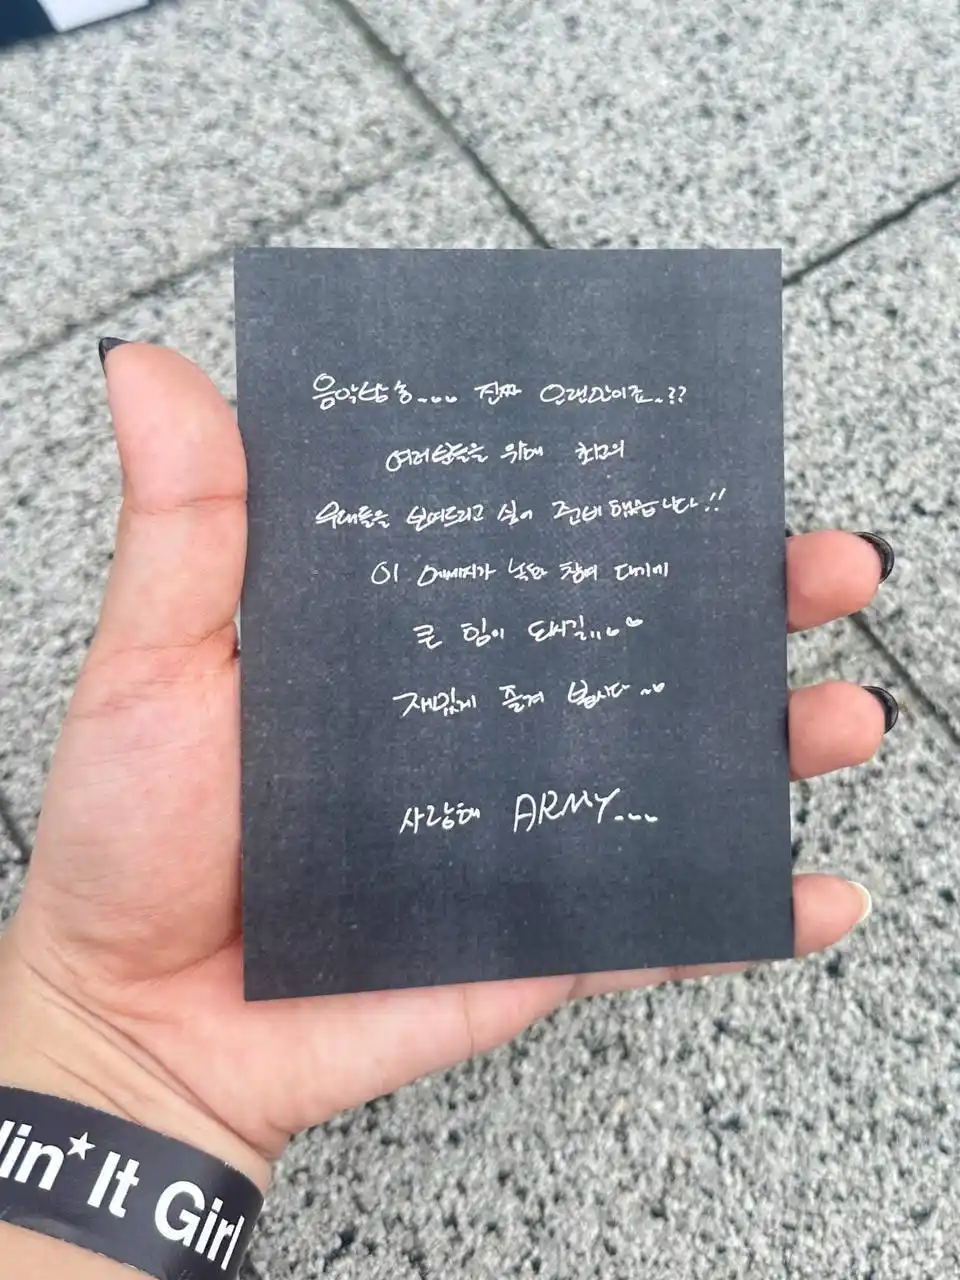 음악방송... 진짜 오랜만이죠..??
여러분들을 위해 최고의
무대들을 보여드리고 싶어 준비했습니다!!
이 에너지가 녹화 참여 대기에
큰 힘이 되시길..
재밌게 즐겨 봅시다~
사랑해 ARMY...
lin* It Girl